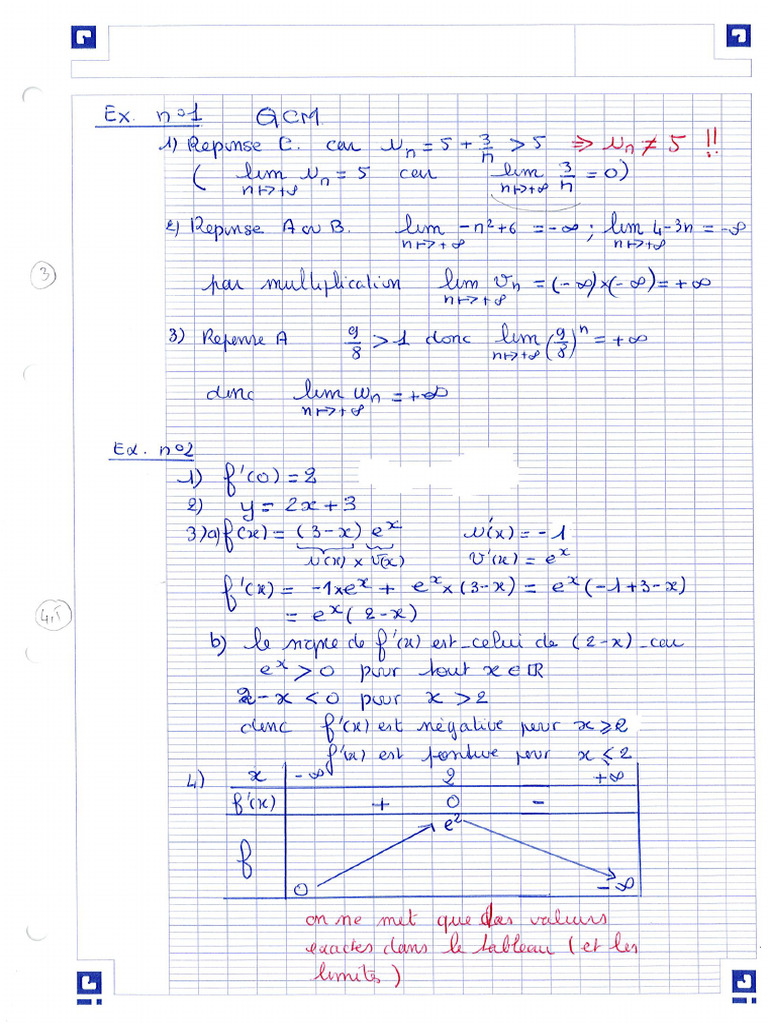 Ex. n°1 QCM
1) Reponse C. car u_n = 5 + 3/n > 5 ⇒ u_n ≠ 5 !!
( lim u_n = 5 car lim 3/n = 0)
n↦+∞ n↦+∞
2) Reponse A ou B. lim -n²+6 = -∞ ; lim 4-3n = -∞
n↦+∞ n↦+∞
3
par multiplication lim v_n = (-∞)×(-∞) = +∞
n↦+∞
3) Reponse A 9/8 > 1 donc lim (9/8)^n = +∞
n↦+∞
donc lim w_n = +∞
n↦+∞
Ex. n°2
1) f'(0) = 2
2) y = 2x + 3
3) a) f(x) = (3-x) e^x u'(x) = -1
u(x) × v(x) v'(x) = e^x
f'(x) = -1×e^x + e^x×(3-x) = e^x(-1+3-x)
4,5
= e^x(2-x)
b) le signe de f'(x) est celui de (2-x) car
e^x > 0 pour tout x∈ℝ
2-x < 0 pour x > 2
donc f'(x) est négative pour x ⩾ 2
f'(x) est positive pour x ⩽ 2
4) x -∞ 2 +∞
f'(x) + 0 -
e²
f
0 -∞
on ne met que des valeurs
exactes dans le tableau (et les
limites)